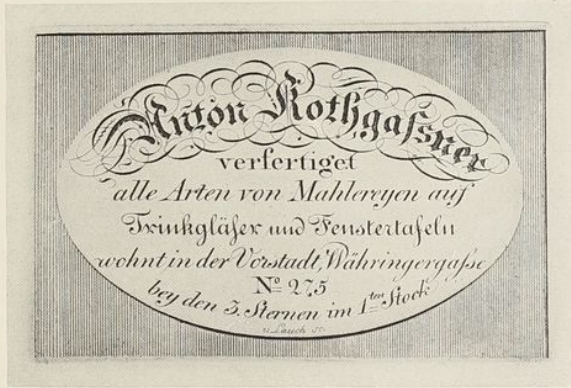 Anton Kothgaſsner
verfertiget
alle Arten von Mahlereyen auf
Trinkgläſer und Fenſtertafeln
wohnt in der Vorstadt, Währingergaſse
Nº 275
bey den 3. Sternen im 1ten Stock